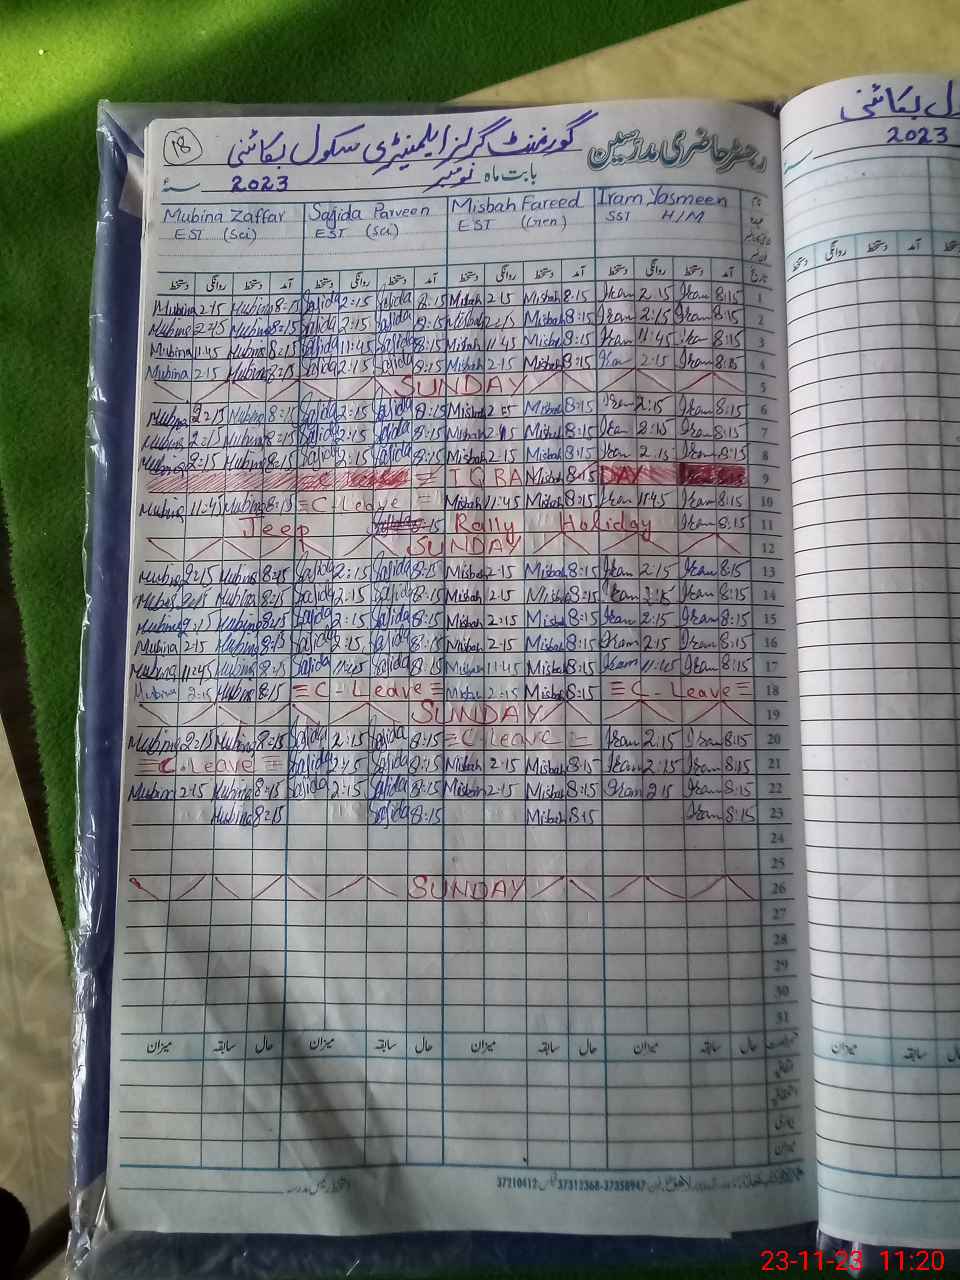 18
گورنمنٹ گرلز ایلیمنٹری سکول بکائنی
رجسٹر حاضری مدرسین
بابت ماہ نومبر 2023
2023
Mubina Zaffar Sajida Parveen Misbah Fareed Iram Yasmeen
EST (Sci) EST (Sci) EST (Gen) SST H/M
دستخط روانگی دستخط آمد دستخط روانگی دستخط آمد دستخط روانگی دستخط آمد دستخط روانگی دستخط آمد تاریخ
Mubina 2:15 Mubina 8:15 Sajida 2:15 Sajida 8:15 Misbah 2:15 Misbah 8:15 Iram 2:15 Iram 8:15 1
Mubina 2:15 Mubina 8:15 Sajida 2:15 Sajida 8:15 Misbah 2:15 Misbah 8:15 Iram 2:15 Iram 8:15 2
Mubina 11:45 Mubina 8:15 Sajida 11:45 Sajida 8:15 Misbah 11:45 Misbah 8:15 Iram 11:45 Iram 8:15 3
Mubina 2:15 Mubina 8:15 Sajida 2:15 Sajida 8:15 Misbah 2:15 Misbah 8:15 Iram 2:15 Iram 8:15 4
SUNDAY 5
Mubina 2:15 Mubina 8:15 Sajida 2:15 Sajida 8:15 Misbah 2:15 Misbah 8:15 Iram 2:15 Iram 8:15 6
Mubina 2:15 Mubina 8:15 Sajida 2:15 Sajida 8:15 Misbah 2:15 Misbah 8:15 Iram 8:15 Iram 8:15 7
Mubina 2:15 Mubina 8:15 Sajida 2:15 Sajida 8:15 Misbah 2:15 Misbah 8:15 Iram 2:15 Iram 8:15 8
IQBA Misbah 8:15 DAY 9
Mubina 11:45 Mubina 8:15 C-Leave Misbah 11:45 Misbah 8:15 Iram 11:45 Iram 8:15 10
Jeep Rally Holiday Iram 8:15 11
SUNDAY 12
Mubina 2:15 Mubina 8:15 Sajida 2:15 Sajida 8:15 Misbah 2:15 Misbah 8:15 Iram 2:15 Iram 8:15 13
Mubina 2:15 Mubina 8:15 Sajida 2:15 Sajida 8:15 Misbah 2:15 Misbah 8:15 Iram 2:15 Iram 8:15 14
Mubina 2:15 Mubina 8:15 Sajida 2:15 Sajida 8:15 Misbah 2:15 Misbah 8:15 Iram 2:15 Iram 8:15 15
Mubina 2:15 Mubina 8:15 Sajida 2:15 Sajida 8:15 Misbah 2:15 Misbah 8:15 Iram 2:15 Iram 8:15 16
Mubina 11:45 Mubina 8:15 Sajida 11:45 Sajida 8:15 Misbah 11:45 Misbah 8:15 Iram 11:45 Iram 8:15 17
Mubina 2:15 Mubina 8:15 C-Leave Misbah 2:15 Misbah 8:15 C-Leave 18
SUNDAY 19
Mubina 2:15 Mubina 8:15 Sajida 2:15 Sajida 8:15 C-Leave Iram 2:15 Iram 8:15 20
C-Leave Sajida 2:15 Sajida 8:15 Misbah 2:15 Misbah 8:15 Iram 2:15 Iram 8:15 21
Mubina 2:15 Mubina 8:15 Sajida 2:15 Sajida 8:15 Misbah 2:15 Misbah 8:15 Iram 2:15 Iram 8:15 22
Mubina 8:15 Sajida 8:15 Misbah 8:15 Iram 8:15 23
24
25
SUNDAY 26
27
28
29
30
31
میزان سابقہ حال میزان سابقہ حال میزان سابقہ حال میزان سابقہ حال
میزان
37210412 37312368-37358947
دستخط روانگی آمد دستخط
میزان سابقہ
23-11-23 11:20